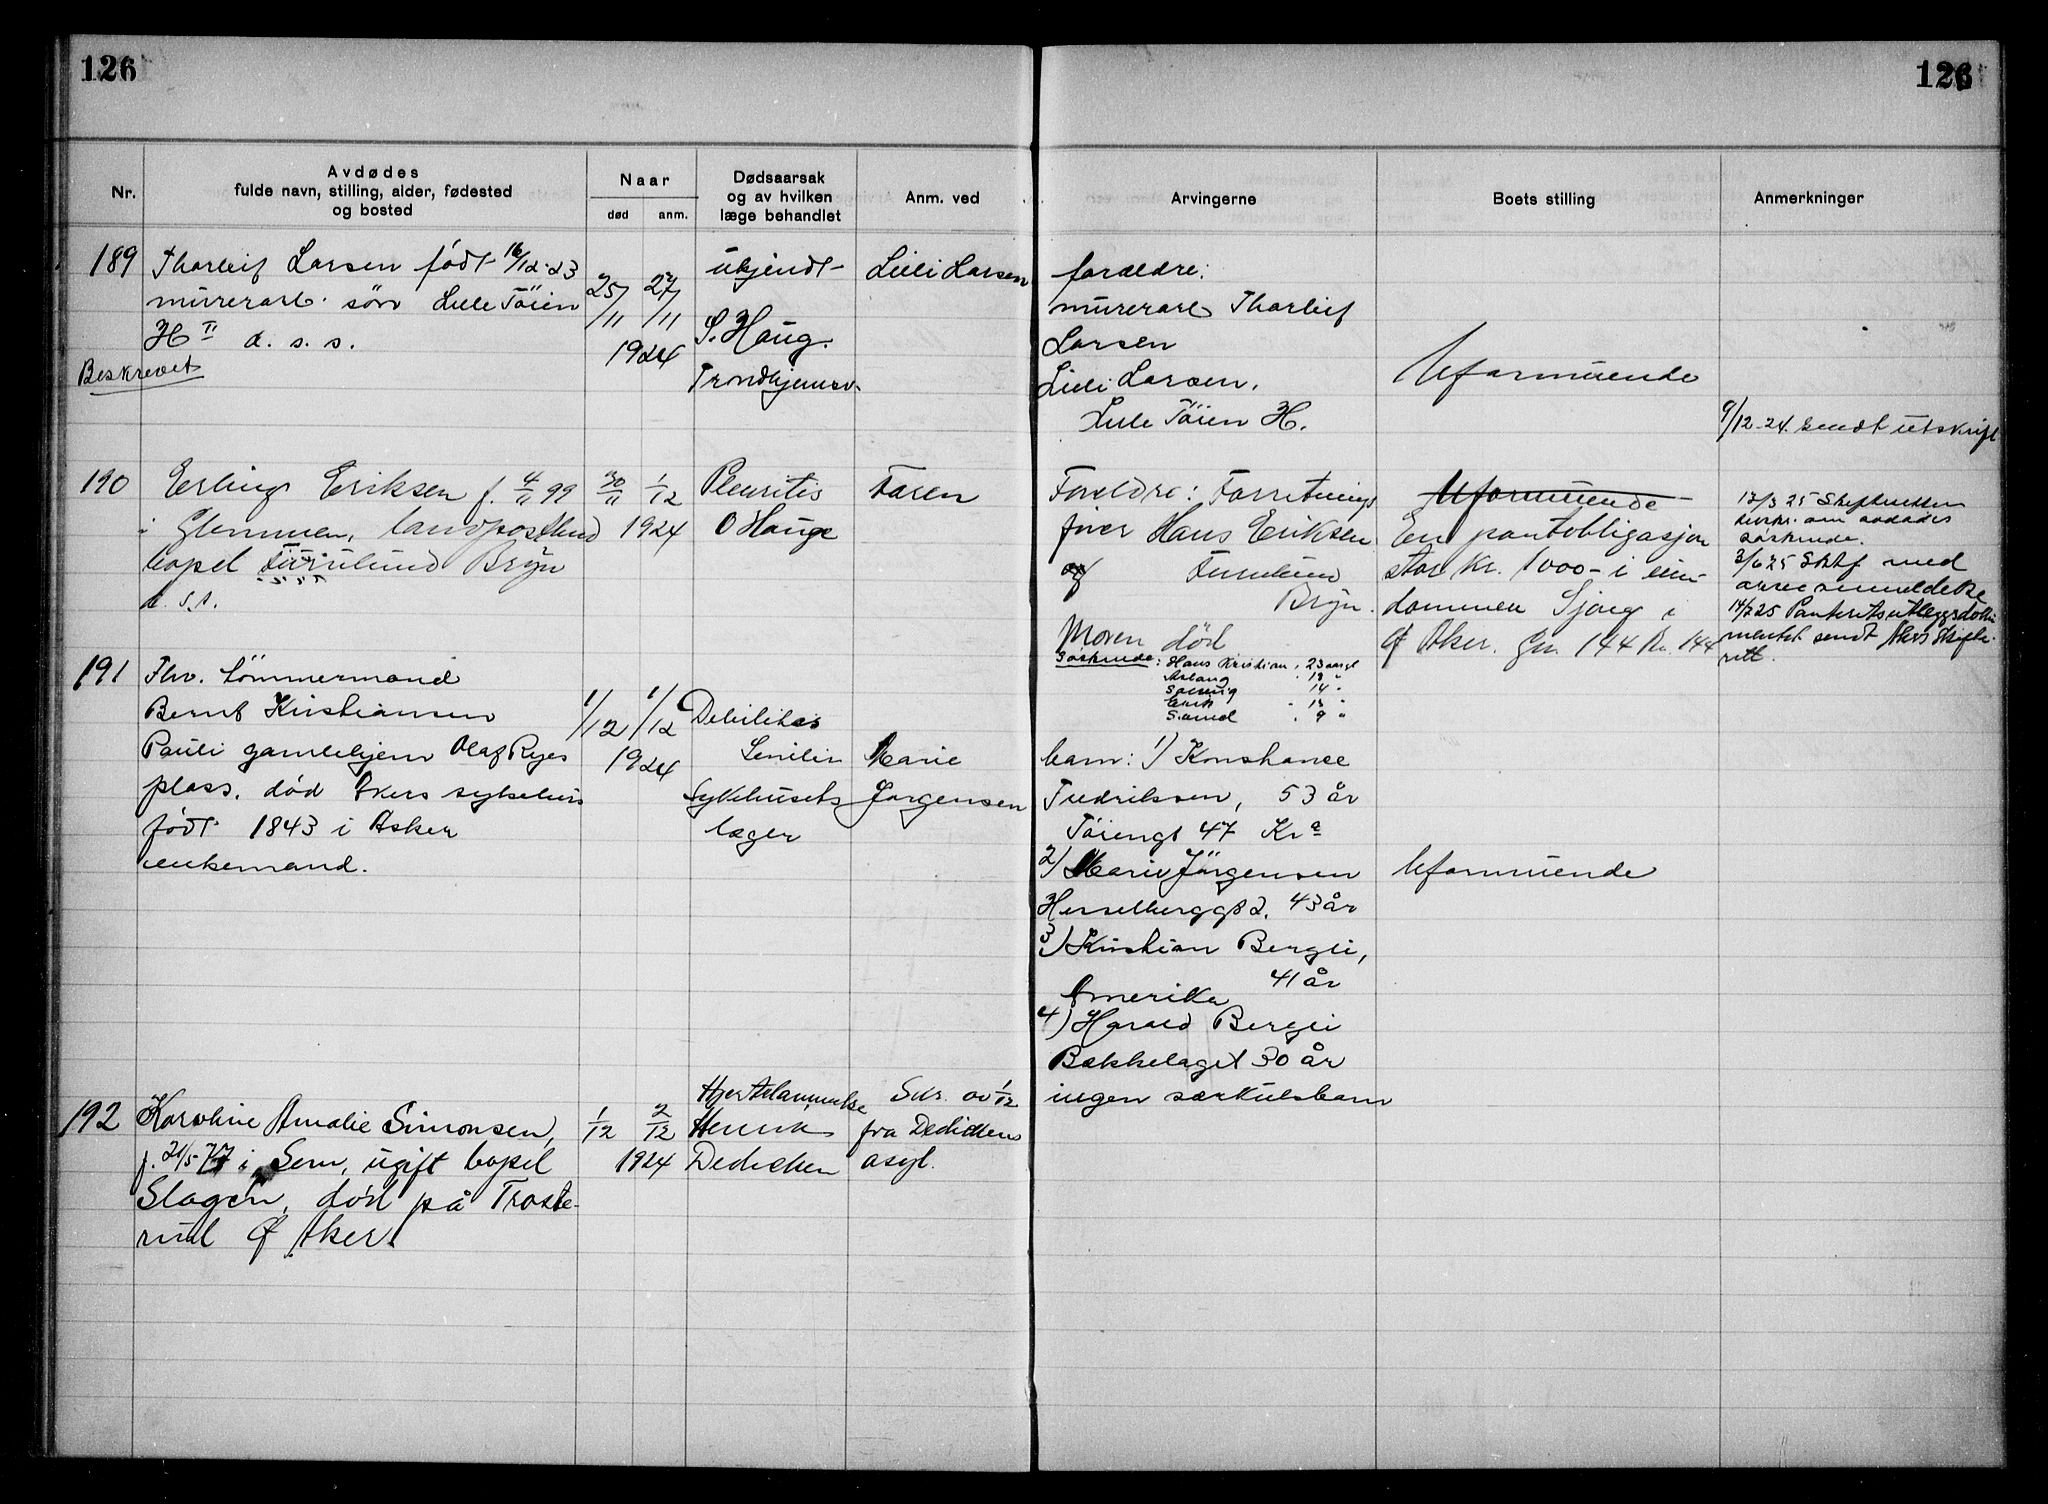 126
126
Nr.
Avdødes
fulde navn, stilling, alder, fødested
og bosted
Naar
død
anm.
Dødsaarsak
og av hvilken
læge behandlet
Anm. ved
Arvingerne
Boets stilling
Anmerkninger
189
Thorleif Larsen født 16/12-23
murerarb. søn Lille Töien
H II d. s. s.
Beskrevet
25/11
27/11
1924
ukjendt
S. Haug.
Trondhjemsv.
Lilli Larsen
foraeldre:
murerarb Thorleif
Larsen
Lilli Larsen.
Lille Töien H.
Uformuende
9/12-24. sendt utskrift
190
Erling Eriksen f. 4/11 99
i Glemmen, landpostbud
bopel Furulund Bryn
d. s. s.
30/11
1/12
1924
Pleuritis
O Hauge
Faren
Foreldre: Forretnings
fører Hans Eriksen
og Furulund
Bryn.
Moren död
Söskende: Hans Kristian, 23 aar
14 "
Erik
9 "
Uformuende
En pantobligasjon
stor kr. 1000- i eien-
dommen i
Ø Aker. Gn. 144 Bn. 144
17/3 25 Skifteretten
om avdødes
söskende.
3/6 25 Skf med
14/7 25
sendt Akers Skifte-
rett.
191
Fhv. tömmermand
Bernt Kristiansen
Pauli gamlehjem Olaf Ryes
plass. död Akers sykehus
født 1843 i Asker
enkemand.
1/12
1/12
1924
Debilitas
Senilis
Sykehusets
læger
Marie
Jørgensen
barn: 1) Konstanse
Fredriksen, 53 år
Töiengt 47 Kra
2) Marie Jörgensen
Hesselberggt 2. 43 år
3) Kristian Bergli,
41 år
Amerika
4) Harald Bergli
Bækkelaget 30 år
ingen særkulsbarn
Uformuende
192
Karoline Amalie Simonsen,
f. 21/5 77 i Sem, ugift bopel
Slagen, död på Troste-
rud Ø Aker.
1/12
2/12
1924
Hjertelammelse
Henrik
Dedichen
Skr. av 1/12
fra Dedichens
asyl.